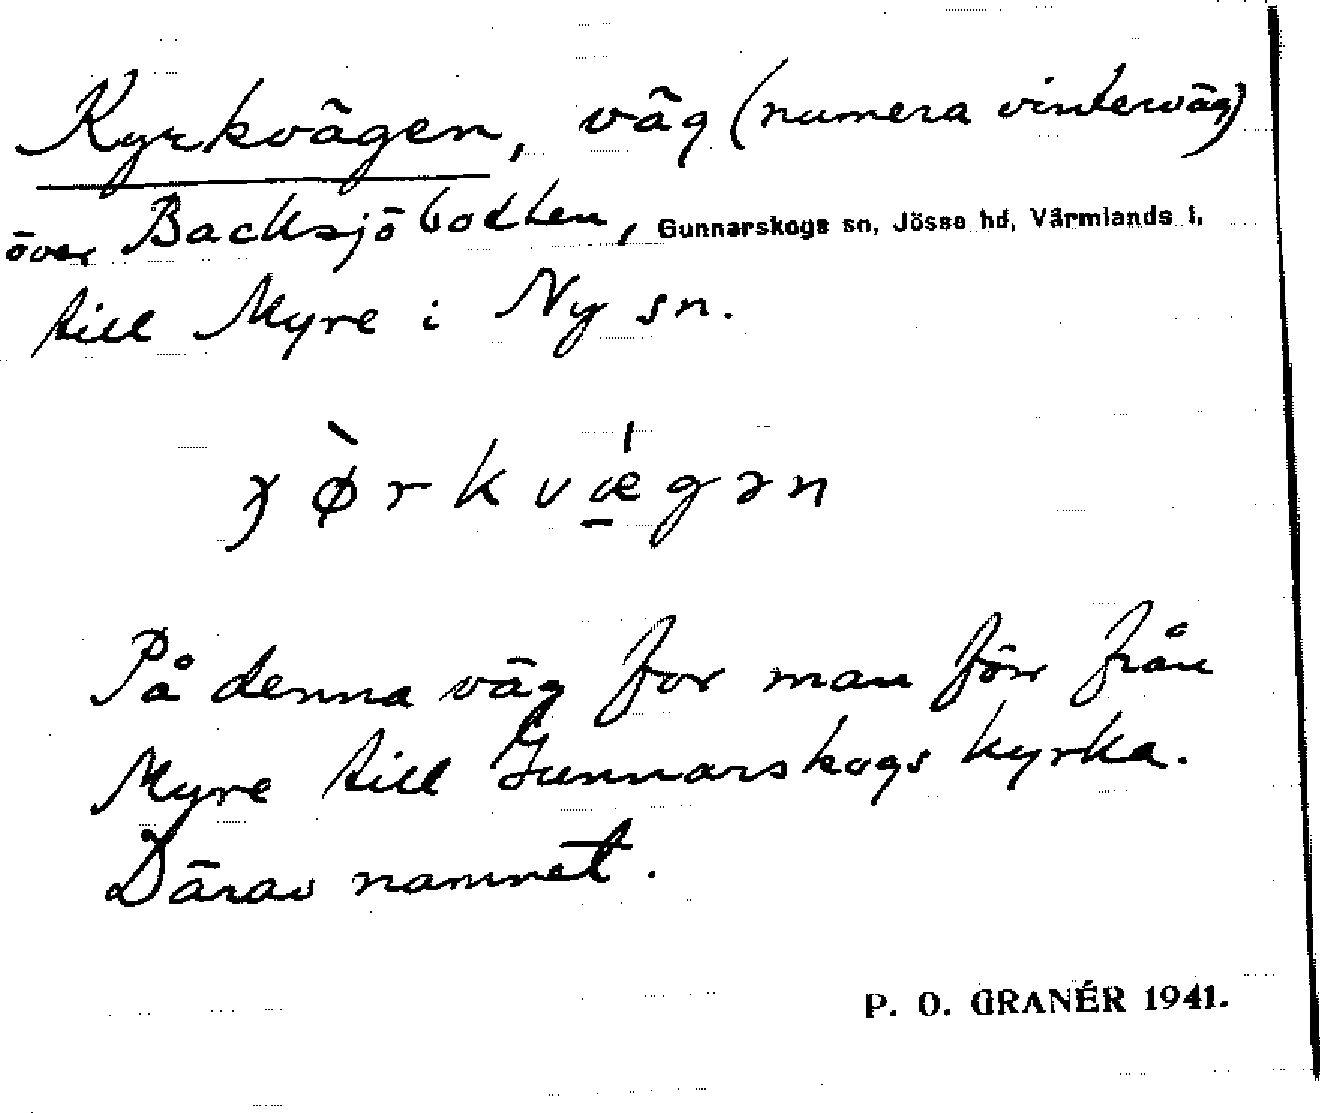 Kyrkvägen, väg (numera vinterväg)
över Backsjöbotten, Gunnarskogs sn, Jösse hd, Värmlands l.
till Myre i Ny sn.
På denna väg for man förr från
Myre till Gunnarskogs kyrka.
Därav namnet.
P. O. GRANÉR 1941.